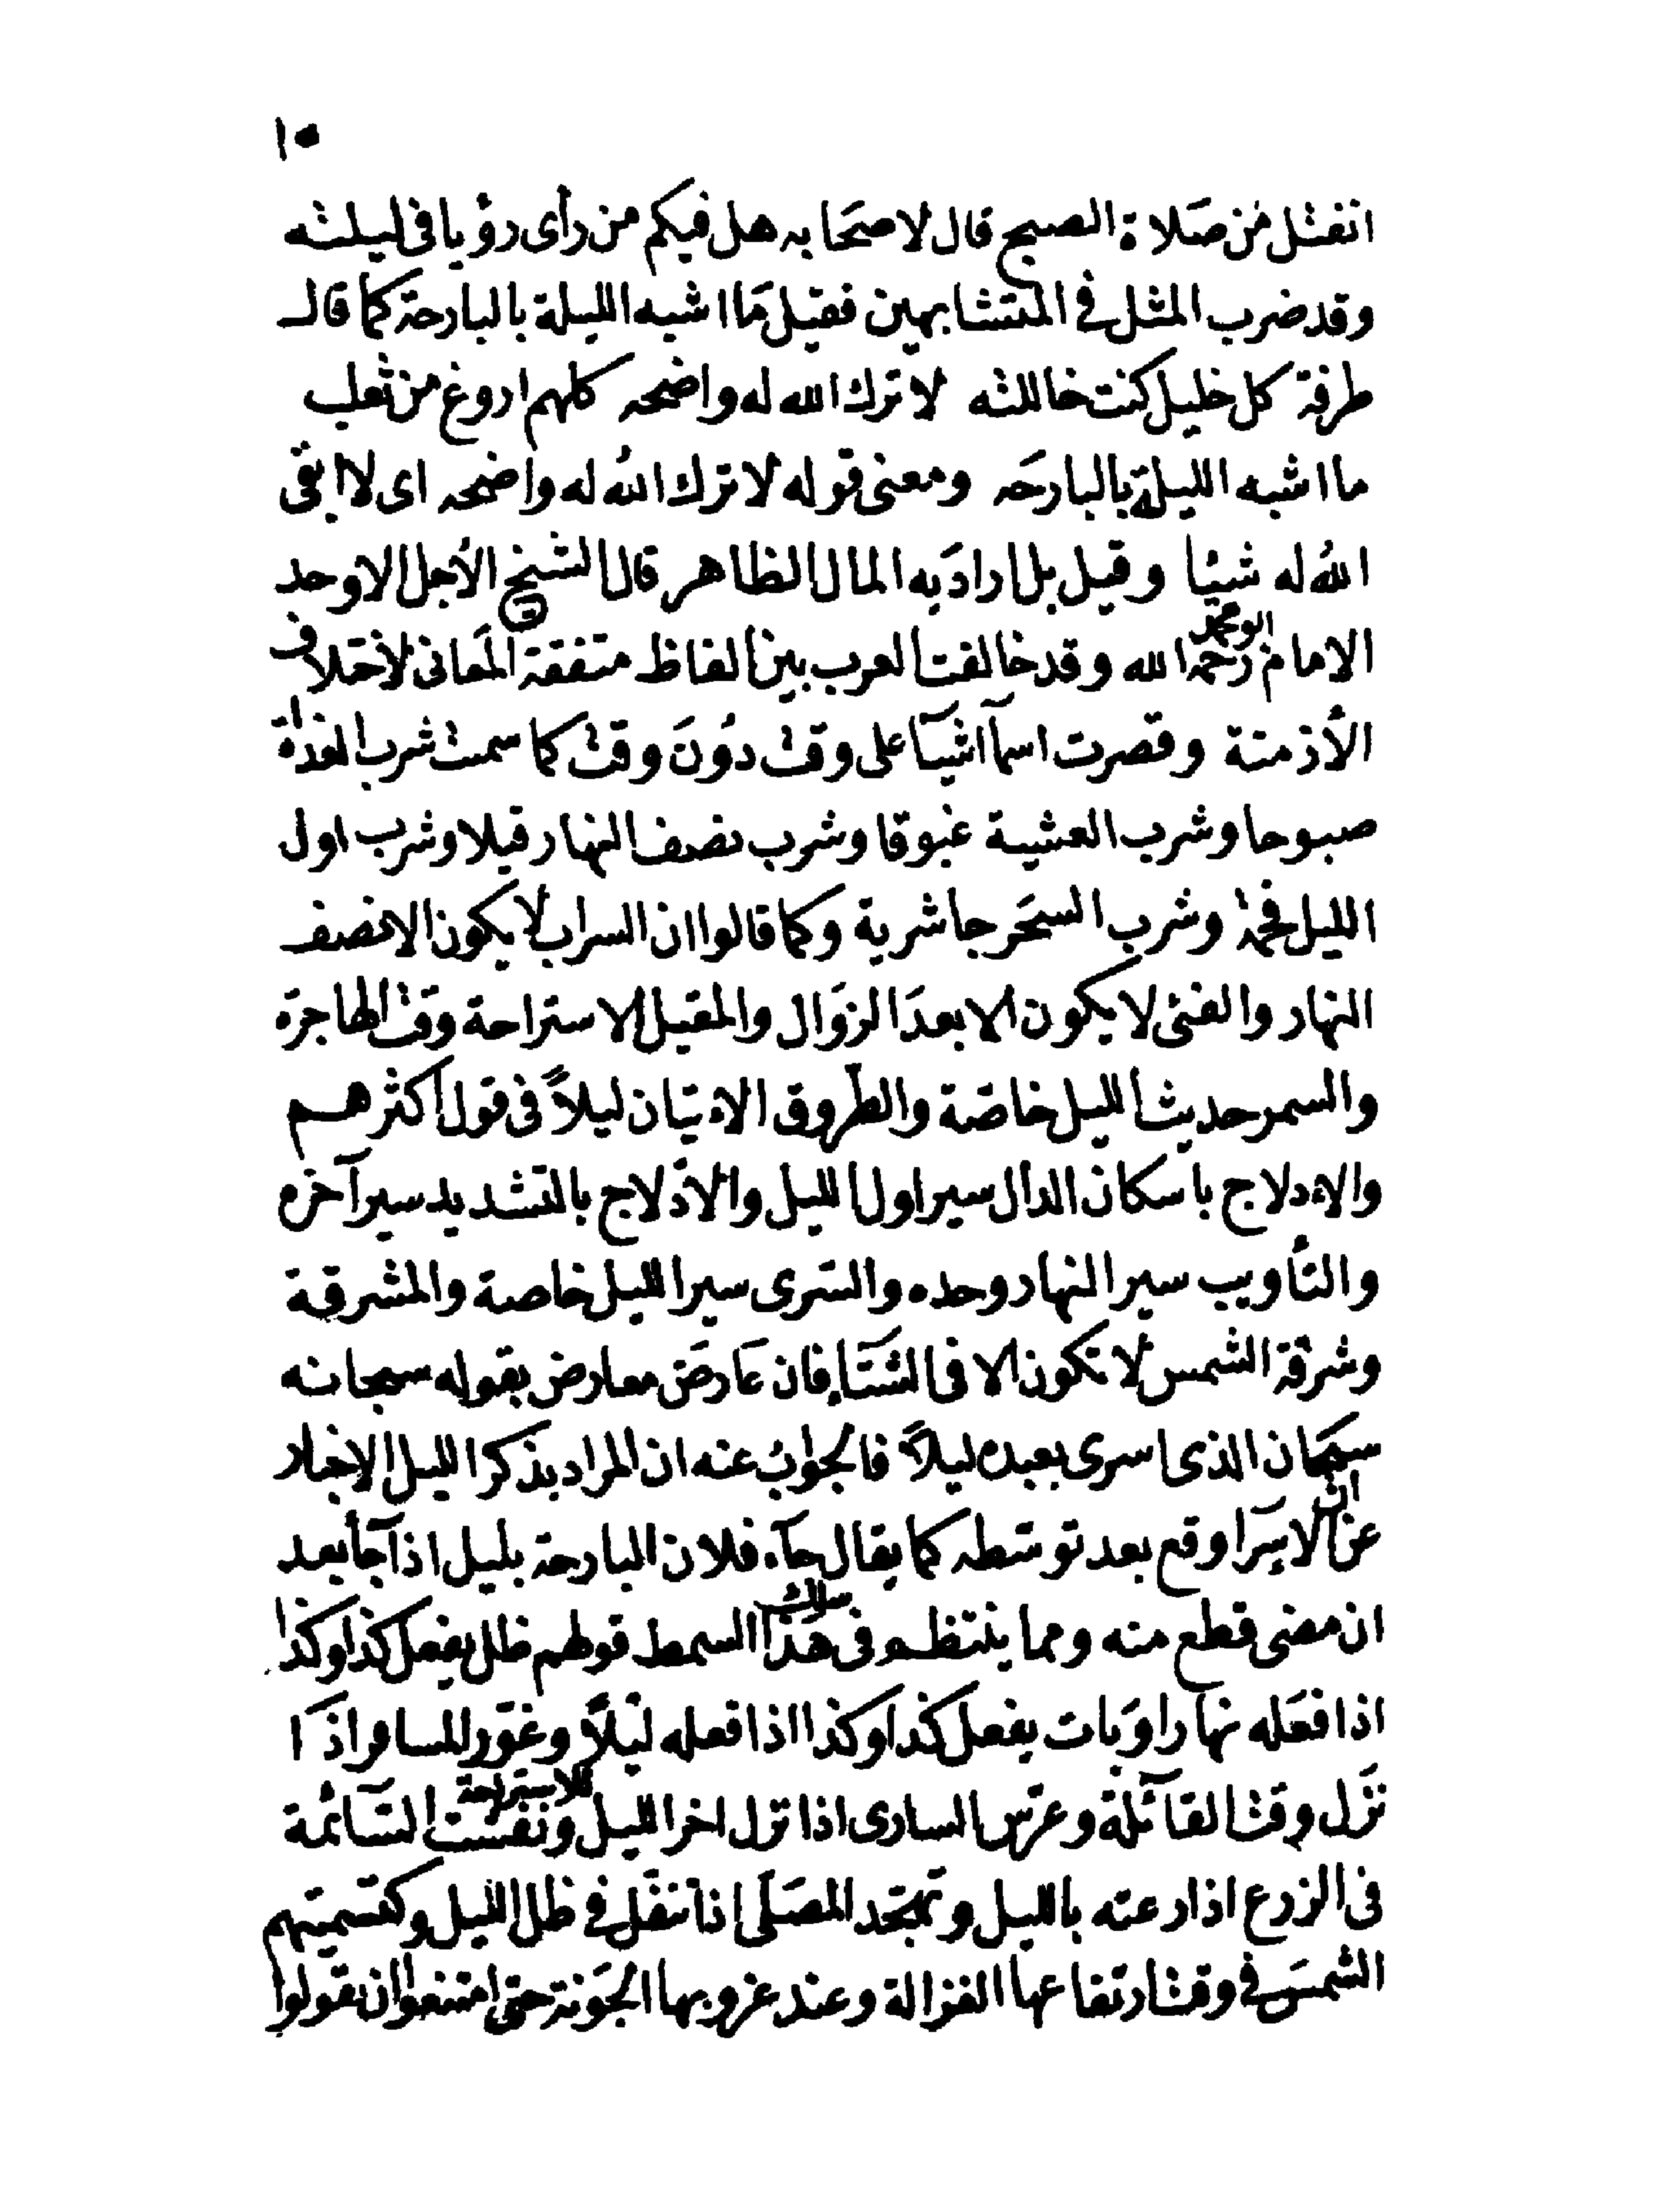 ١٠
انفتل من صَلاة الصبح قال لاصحَابه هل فيكم من رأى رؤيا فى ليلته
وقد ضرب المثل فى المتشابهين فقيل مَا اشبه الليلة بالبارحة كما قال
طرفة كل خليل كنت خاللته لا ترك الله له واضحه كلهم اروغ من ثعلب
ما اشبه الليلة بالبارحَه ومعنى قوله لا ترك الله له واضحه اى لا ابقى
الله له شيئا وقيل بل ارادَ به المال الظاهر قال الشيخ الأجل الاوحد
الامام ابو محمد رحمه الله وقد خالفت العرب بين الفاظ متفقة المَعانى لاختلاف
الأزمنة وقصرت اسمآ اشيآ على وقت دُونَ وقت كما سمت شرب الغداة
صبوحا وشرب العشية غبوقا وشرب نصف النهار قيلا وشرب اول
الليل فحمة وشرب السحَر جاشرية وكما قالوا ان السراب لا يكون الا نصف
النهار والفئ لا يكون الا بعدَ الزوَال والمقيل الاستراحة وقت الهاجرَة
والسمر حديث الليل خاصّة والطروق الاءتيان ليلاً فى قول اكثرهم
والاءدلاج باسكان الدال سير اول الليل والادّلاج بالتشديد سير آخره
والتأويب سير النهار وحده والسّرى سير الليل خاصة والمشرقة
وشرقة الشمس لا تكون الا فى الشتَآ فان عَارضَ معارض بقوله سبحانه
سبحَان الذى اسرى بعبده ليلاً فالجوابُ عنه ان المراد بذكر الليل الاخبار
عن ان الاسِرَا وقع بعد توسّطه كما يقال جآء فلان البارحة بليل اذا جآ بعد
ان مضى قطع منه ومما ينتظم فى سلك هَذا السمط قولهم ظل يفعل كذا وكذا
اذا فعَله نهارا وَبات يفعل كذا وكذا اذا فعله ليْلاً وغوّر المسافر اذَا
نزَل وقت القآئلة وعرّس السارى اذا نزل اخر الليل للاستراحة ونفشت السّآئمة
فى الزرع اذا رعته بالليل وتهجّد المصَلّى اذا تنفّل فى ظل الليل وكتسميتهم
الشمسَ فى وقت ارتفاعها الغزالة وعند غروبها الجَونة حتى امتنعوا ان يقولوا